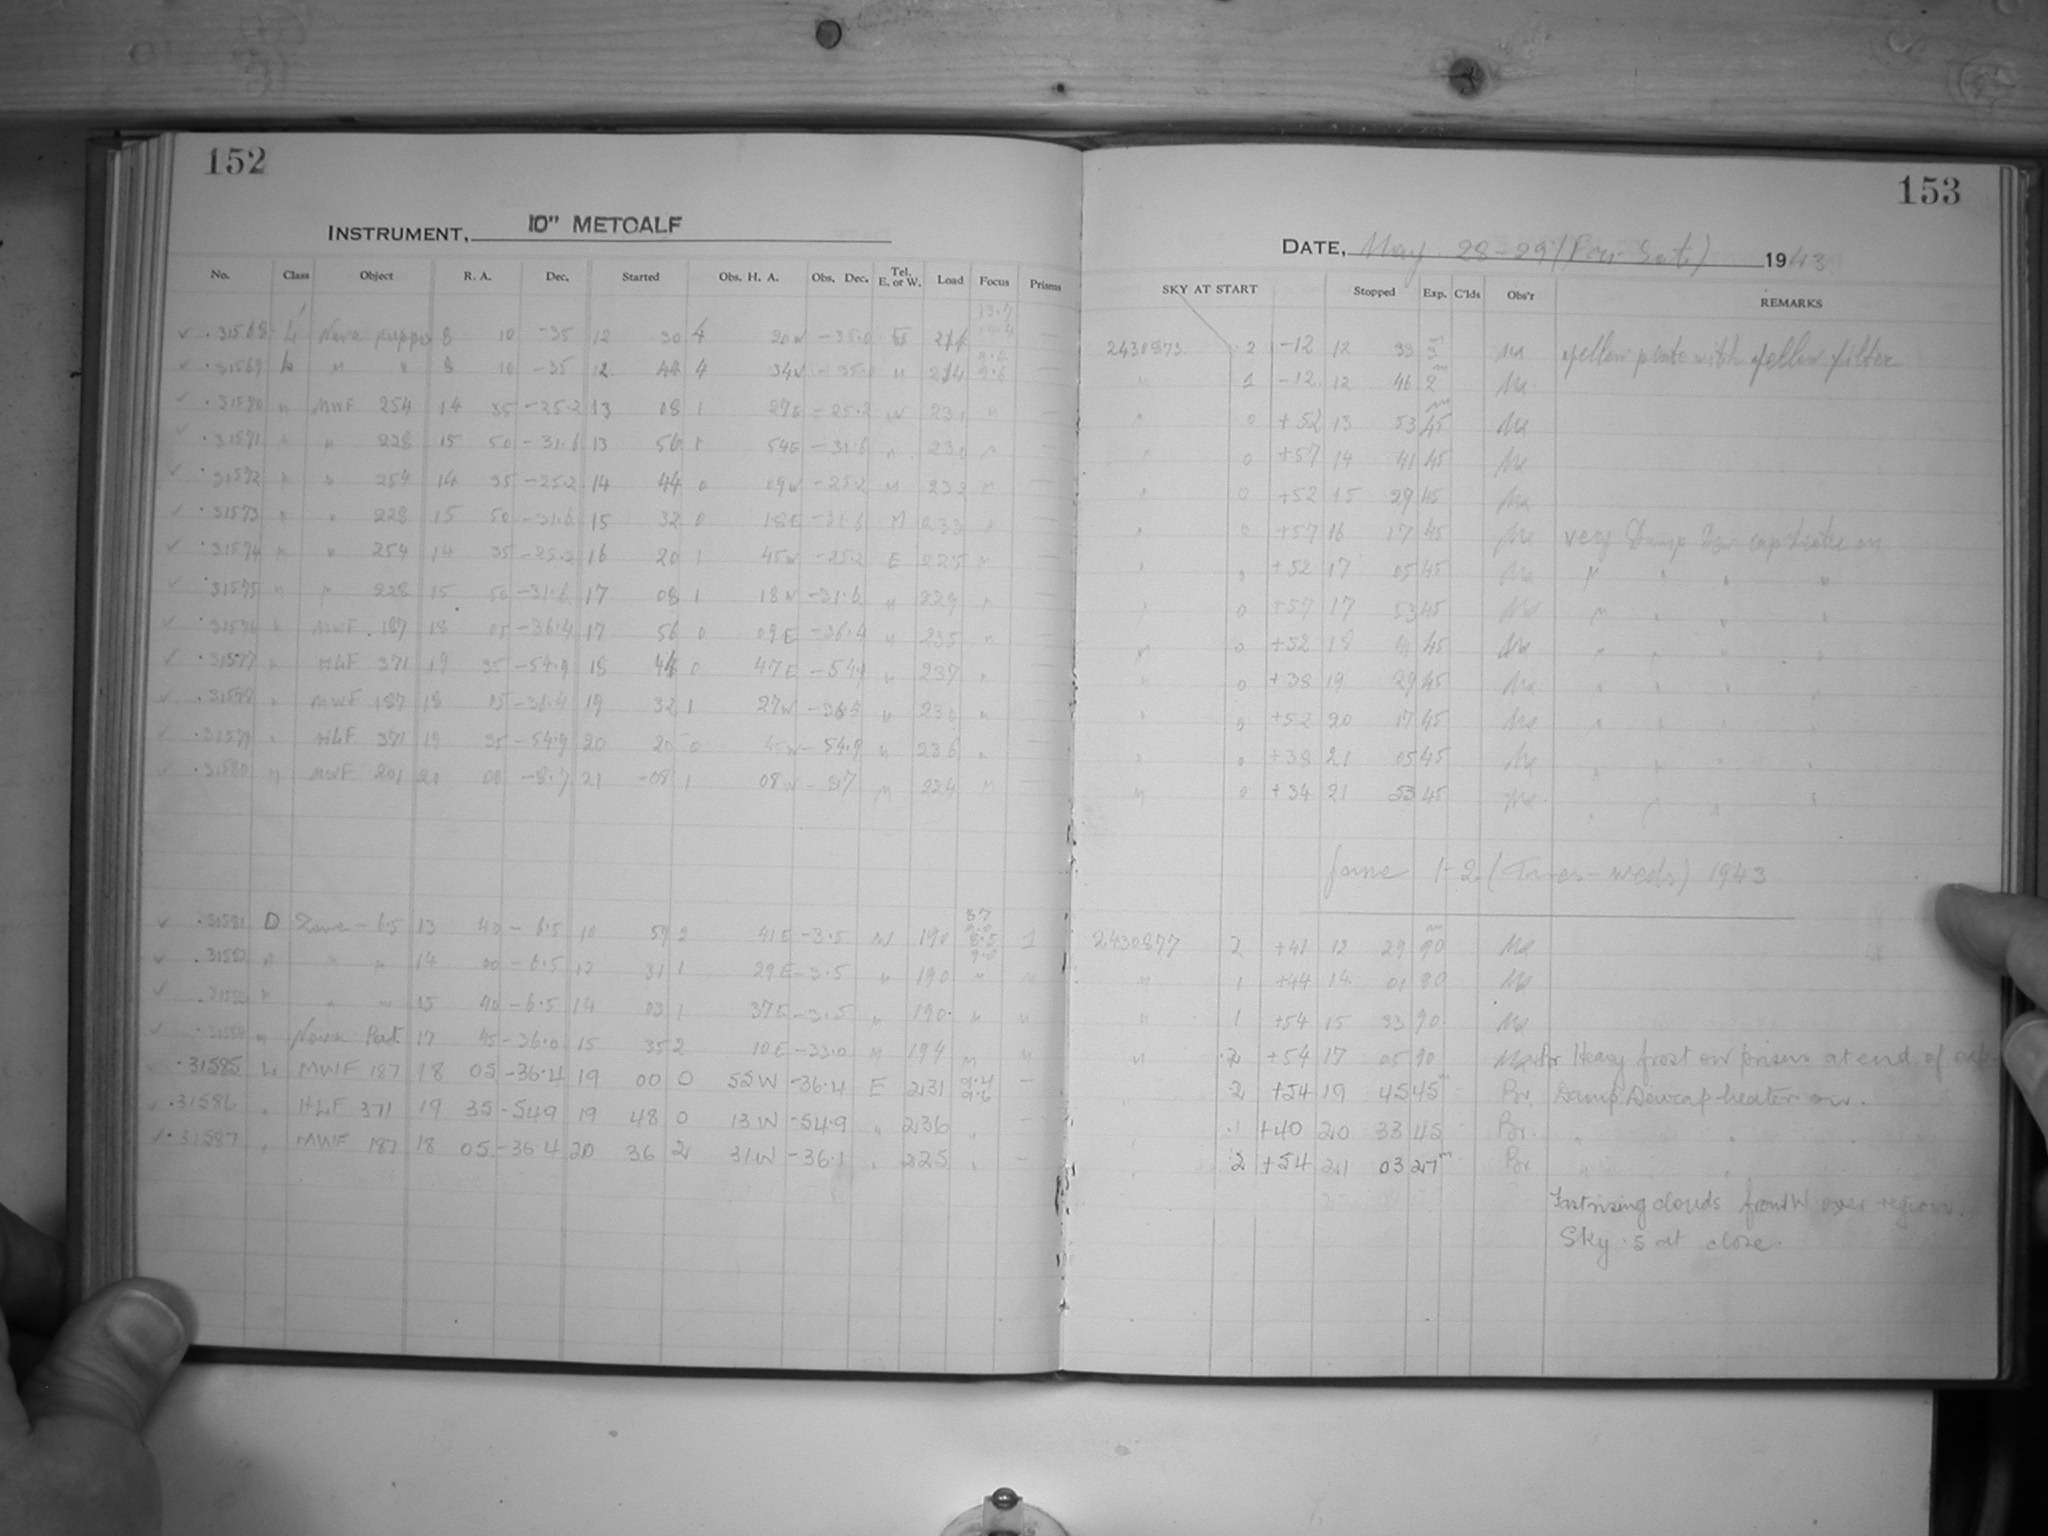 152
INSTRUMENT, 10" METCALF
No. Class Object R. A. Dec. Started Obs. H. A. Obs. Dec. Tel. E. or W. Load Focus Prisms
.31568 L Nova puppis 8 10 -35 12 30 4 20W -35.0 W 13.7
.31569 L " " 8 10 -35 12 44 4 34W -35.0 " 214 9.6
" MWF 254 14 35 -25.2 13 08 1 27E -25.2 W 231 "
.31571 " " 228 15 50 -31.6 13 56 1 54E -31.6 " 230 "
.31572 " " 254 14 35 -25.2 14 44 0 09W -25.2 " 233 "
.31573 " " 228 15 50 -31.6 15 32 0 18E -31.6 " 233 "
.31574 " " 254 14 35 -25.2 16 20 1 45W -25.2 E 225 "
.31575 " " 228 15 50 -31.6 17 08 1 18W -31.6 " 229 "
.31576 " MWF 187 18 05 -36.4 17 56 0 09E -36.4 " 235 "
.31577 " HLF 371 19 35 -54.9 18 44 0 47E -54.9 " 237 "
" MWF 187 18 05 -36.4 19 32 1 27W -36.4 " 230 "
.31579 " HLF 371 19 35 -54.9 20 20 0 -54.9 " 236 "
.31580 " MWF 201 20 00 -8.7 21 -08 1 08W -8.7 " 224 "
.31581 D Zone -6.5 13 40 -6.5 10 59 2 41E -3.5 W 190 8.5 9.0 1
.31582 " " " 14 -6.5 12 31 1 29E -3.5 " 190 " "
" " " 15 40 -6.5 14 03 1 37E -3.5 " 190 " "
.31584 " 17 45 -36.0 15 35 2 10E -33.0 " 194 " "
.31585 L MWF 187 18 05 -36.4 19 00 0 55W -36.4 E 231 9.4 9.6 -
.31586 " HLF 371 19 35 -54.9 19 48 0 13W -54.9 " 236 " -
.31587 " MWF 187 18 05 -36.4 20 36 2 31W -36.1 " 225 " -
153
DATE, May 28-29 (Fri-Sat) 1943
SKY AT START Stopped Exp. C'lds Obs'r REMARKS
2430873 2 -12 12 33 3 Ma yellow plate with yellow filter
" 1 -12 12 46 2 Ma
" 0 +52 13 53 45 Ma
" 0 +57 14 41 45 Ma
" 0 +52 15 29 45 Ma
" 0 +57 16 17 45 Ma very Damp Dew cap heater on
" 0 +52 17 05 45 Ma " " " "
" 0 +57 17 53 45 Ma " " " "
" 0 +52 18 41 45 Ma " " " "
" 0 +38 19 29 45 Ma " " " "
" 0 +52 20 17 45 Ma " " " "
" 0 +38 21 05 45 Ma " " " "
" 0 +34 21 53 45 Ma " " " "
June 1-2 (Tues-Weds) 1943
2430877 2 +41 12 29 90 Ma
" 1 +44 14 01 90 Ma
" 1 +54 15 33 90 Ma
" 2 +54 17 05 90 Ma Br Heavy frost on prism at end of exp.
" 2 +54 19 45 45 Br. Damp Dewcap heater on.
" 1 +40 20 33 45 Br. " "
" 2 +54 21 03 27 Br " "
clouds from W over region.
Sky 5 at close.